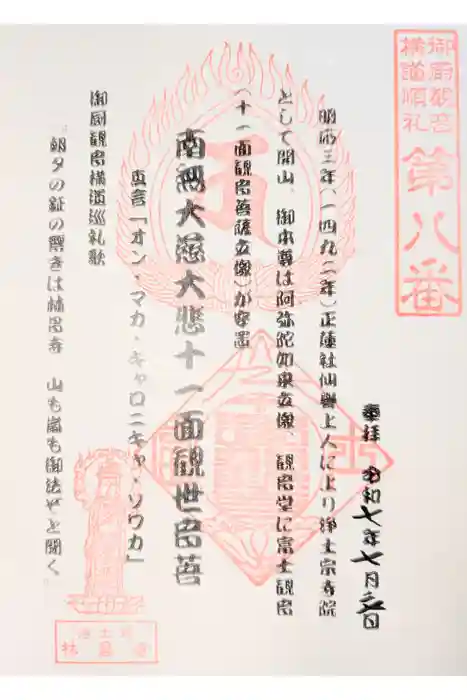 御厨観音
横道順礼
第八番
奉拝 令和七年七月
明応三年(一四九二年)正蓮社仙譽上人により浄土宗寺院
として開山、御本尊は阿弥陀如来立像、観音堂に富士観音
(十一面観音菩薩立像)が安置
南無大慈大悲十一面観世音菩
真言「オン・マカ・キャロニキャ・ソワカ」
御厨観音横道巡礼歌
朝夕の鉦の響きは林昌寺 山も嵐も御法やと聞く
浄土宗
林昌寺